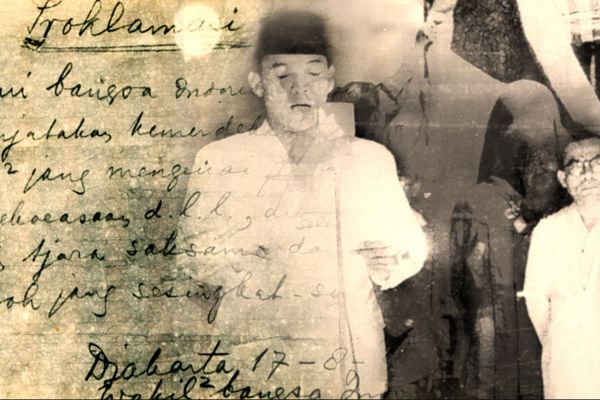 Proklamasi
mi bangsa Indone
njatakan kemerdek
² jang mengenai p
ekoeasaan d.l.l., di
sele
tjara saksama da
oh jang sesingkat-
Djakarta, 17 - 8 -
Wakil² bangsa Indo